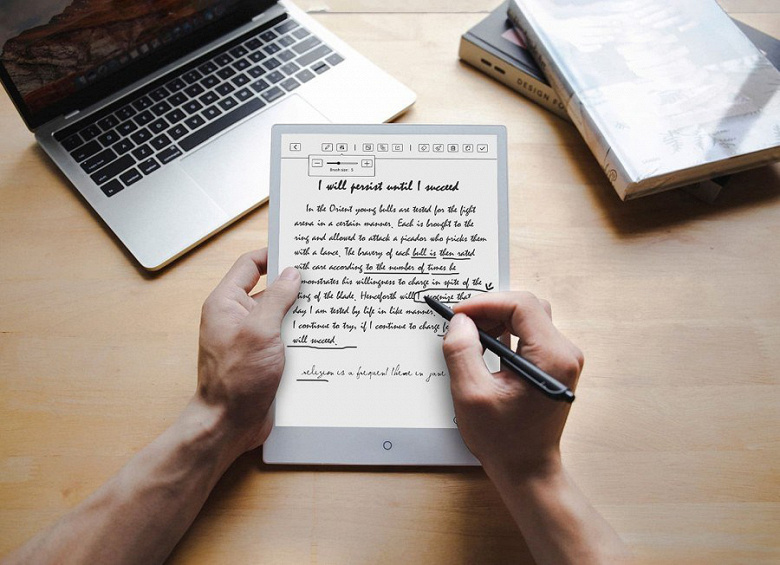 DESIGN FO
Brush size: 5
I will persist until I succeed
In the Orient young bulls are tested for the fight
arena in a certain manner. Each is brought to the
ring and allowed to attack a picador who pricks them
with a lance. The bravery of each bull is then rated
with care according to the number of times be
monstrates his willingness to charge in spite of the
ting of the blade. Henceforth will I recognize that
day I am tested by life in like manner.
I continue to try, if I continue to charge
will succeed.
religion is a frequent theme in jane